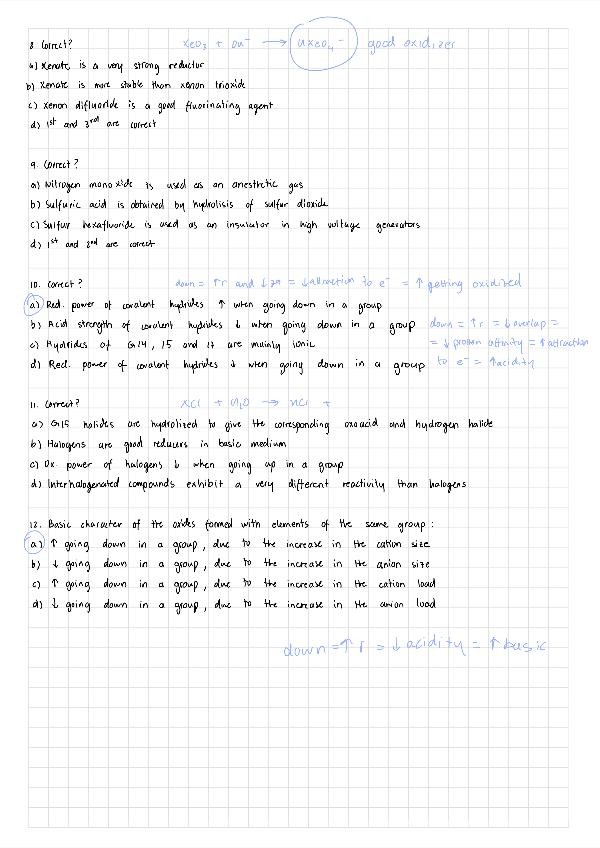 8. Correct? xeo3 + OH⁻ → HXeO4⁻ good oxidizer
a) Xenate is a very strong reductor
b) Xenate is more stable than xenon trioxide
c) Xenon difluoride is a good fluorinating agent
d) 1st and 3rd are correct
9. Correct?
a) Nitrogen monoxide is used as an anesthetic gas
b) Sulfuric acid is obtained by hydrolisis of sulfur dioxide
c) Sulfur hexafluoride is used as an insulator in high voltage generators
d) 1st and 2nd are correct
10. Correct? down = ↑r and ↓z* = ↓attraction to e⁻ = ↑ getting oxidized
a) Red. power of covalent hydrides ↑ when going down in a group
b) Acid strength of covalent hydrides ↓ when going down in a group down = ↑r = ↓overlap =
c) Hydrides of G14, 15 and 17 are mainly ionic = ↓ proton affinity = ↑attraction
d) Red. power of covalent hydrides ↓ when going down in a group to e⁻ = ↑acidity
11. Correct? XCl + H2O → HCl +
a) G15 halides are hydrolized to give the corresponding oxoacid and hydrogen halide
b) Halogens are good reducers in basic medium
c) Ox. power of halogens ↓ when going up in a group
d) Interhalogenated compounds exhibit a very different reactivity than halogens
12. Basic character of the oxides formed with elements of the same group:
a) ↑ going down in a group, due to the increase in the cation size
b) ↓ going down in a group, due to the increase in the anion size
c) ↑ going down in a group, due to the increase in the cation load
d) ↓ going down in a group, due to the increase in the anion load
down = ↑ r = ↓ acidity = ↑ basic